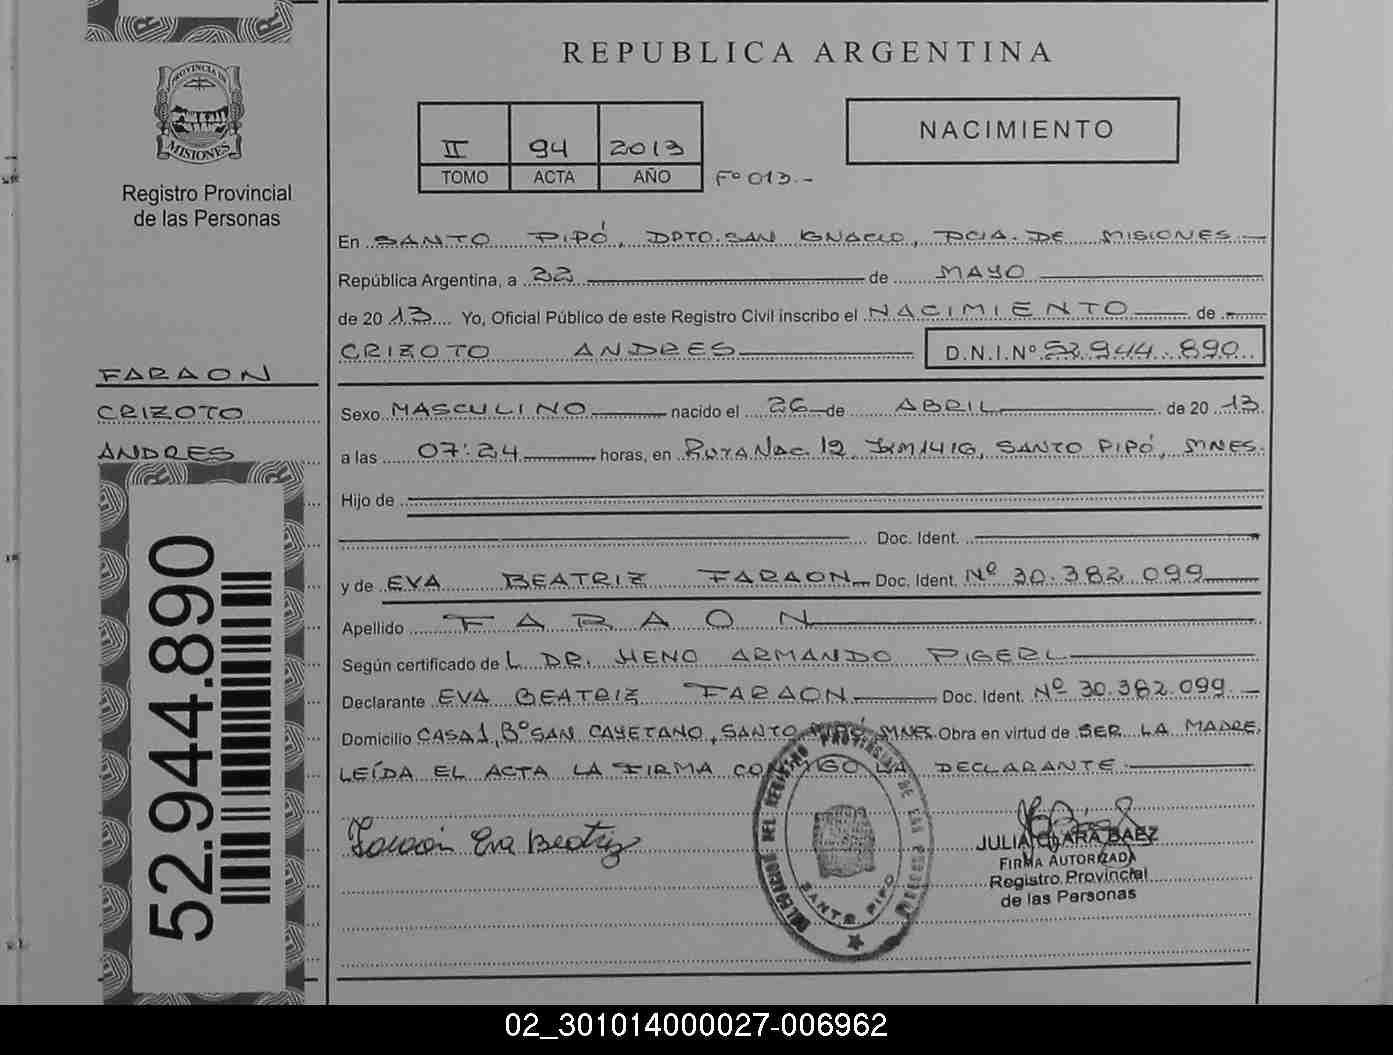 REPUBLICA ARGENTINA
PROVINCIA DE
MISIONES
Registro Provincial
de las Personas
II 94 2013
TOMO ACTA AÑO Fº 013.-
NACIMIENTO
En SANTO PIPÓ, DPTO. SAN IGNACIO, PCIA. DE MISIONES.-
República Argentina, a 22 de MAYO
de 2013 Yo, Oficial Público de este Registro Civil inscribo el NACIMIENTO de
CRIZOTO ANDRES D.N.I.Nº 52.944.890
FARAON
CRIZOTO
ANDRES
Sexo MASCULINO nacido el 26 de ABRIL de 2013.
a las 07:24 horas, en RUTA NAC. 12 KM 1416, SANTO PIPÓ, MNES.
Hijo de
Doc. Ident.
y de EVA BEATRIZ FARAON Doc. Ident. Nº 30.382.099
Apellido FARAON
Según certificado de L DR. HENO ARMANDO PIGERL
Declarante EVA BEATRIZ FARAON Doc. Ident. Nº 30.382.099.-
Domicilio CASA 1, Bº SAN CAYETANO, SANTO PIPÓ MNES. Obra en virtud de SER LA MADRE.
LEÍDA EL ACTA LA FIRMA CONMIGO LA DECLARANTE.
Faraón Eva Beatriz
DELEGACION DEL REGISTRO PROVINCIAL DE LAS PERSONAS
SANTO PIPO
JULIA CLARA BAEZ
FIRMA AUTORIZADA
Registro Provincial
de las Personas
52.944.890
02_301014000027-006962